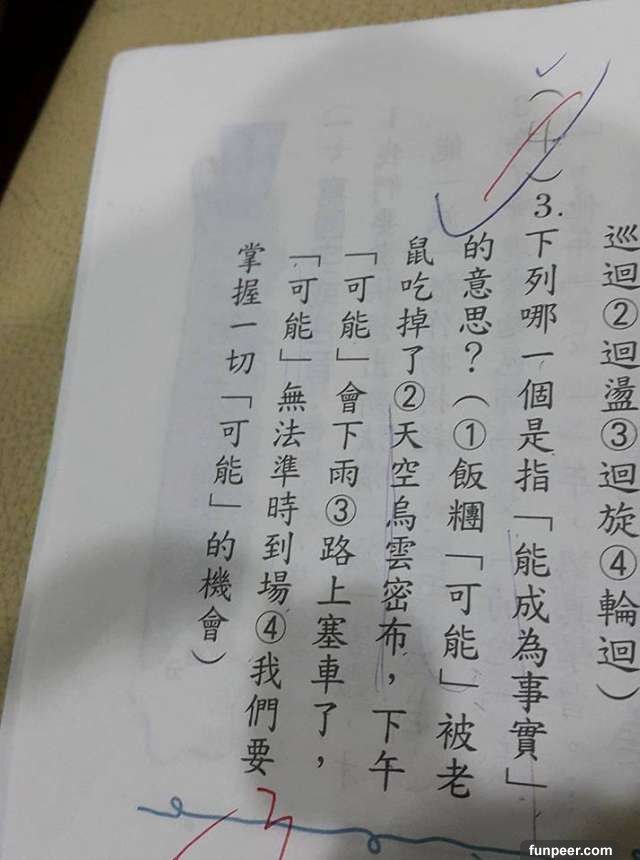 巡迴②迴盪③迴旋④輪迴）
（4）3.下列哪一個是指「能成為事實」
的意思？（①飯糰「可能」被老
鼠吃掉了②天空烏雲密布，下午
「可能」會下雨③路上塞車了，
「可能」無法準時到場④我們要
掌握一切「可能」的機會）
funpeer.com